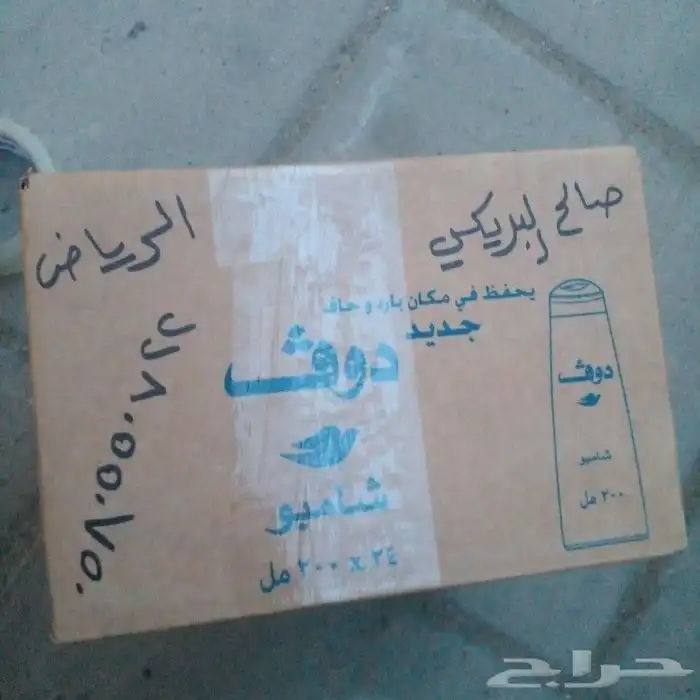 صالح البريكي
الرياض
يحفظ في مكان بارد وجاف
جديد
دوڤ
شامبو
٢٤ x ٢٠٠ مل
دوڤ
شامبو
٢٠٠ مل
حراج